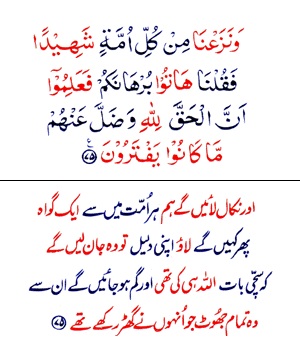 وَنَزَعْنَا مِنْ كُلِّ اُمَّةٍ شَهِيْدًا
فَقُلْنَا هَاتُوْا بُرْهَانَكُمْ فَعَلِمُوْٓا
اَنَّ الْحَقَّ لِلّٰهِ وَضَلَّ عَنْهُمْ
مَّا كَانُوْا يَفْتَرُوْنَ ﴿۷۵﴾
اور نکال لائیں گے ہم ہر اُمّت میں سے ایک گواہ
پھر کہیں گے لاؤ اپنی دلیل تو وہ جان لیں گے
کہ سچّی بات اللہ ہی کی تھی اور گم ہو جائیں گے ان سے
وہ تمام جھُوٹ جو اُنہوں نے گھڑ رکھے تھے ﴿۷۵﴾